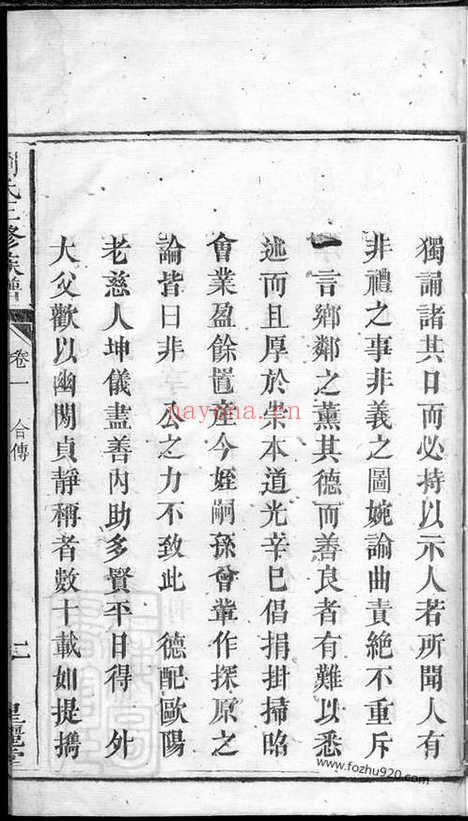 獨誦諸其口而必持以示人若所聞人有
非禮之事非義之圖婉諭曲責絕不重斥
一言鄉鄰之薰其德而善良者有難以悉
述而且厚於崇本道光辛巳倡捐掛掃昭
會業盈餘置產今姪嗣孫曾輩作探原之
論皆曰非 公之力不致此 德配歐陽
老慈人坤儀盡善内助多賢平日得 外
大父歡以幽閒貞靜稱者數十載如提擕
氏三修族譜
卷一
合傳
nayona.cn
www.fozhu920.com